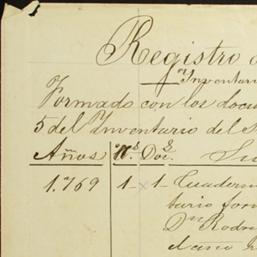 Registro d
Inventari
Formado con los docu
5 del Inventario del S
Años Nos. Docs. Su
1.769 1 - x 1 - Cuadern
tario for
Dn Rodri